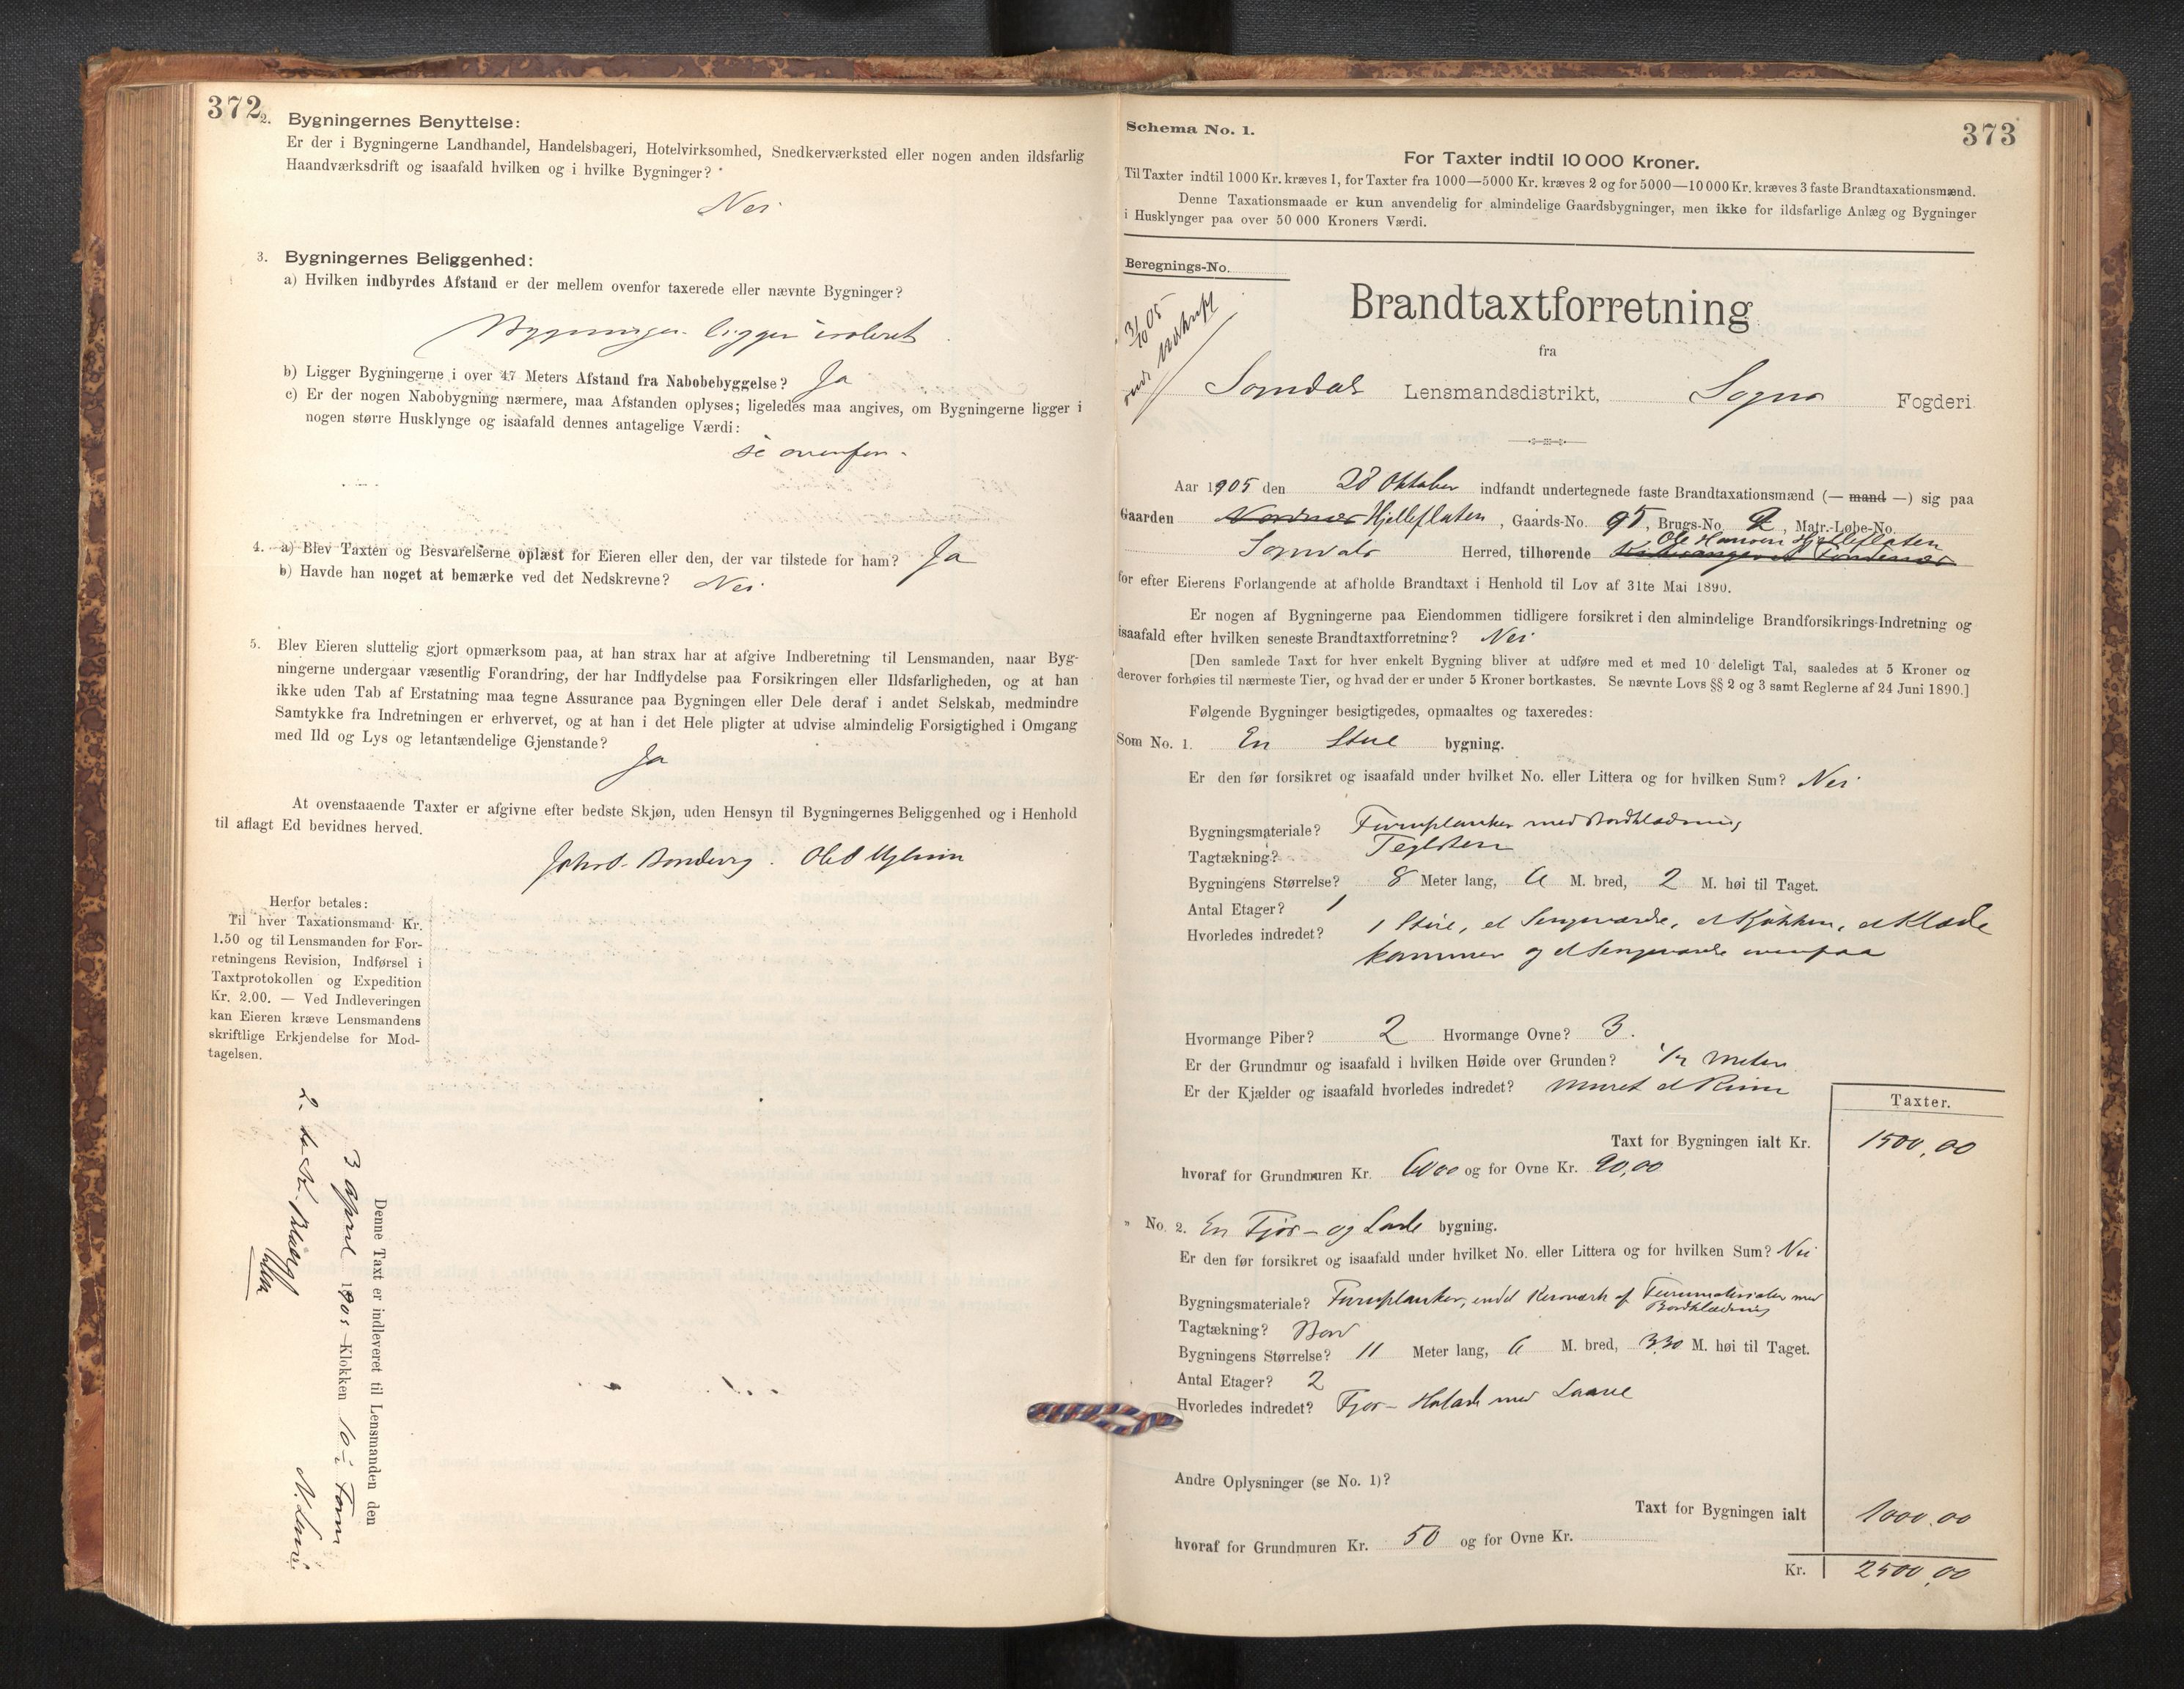 372
2. Bygningernes Benyttelse:
Er der i Bygningerne Landhandel, Handelsbageri, Hotelvirksomhed, Snedkerværksted eller nogen anden ildsfarlig
Haandværksdrift og isaafald hvilken og i hvilke Bygninger?
Nei
3. Bygningernes Beliggenhed:
a) Hvilken indbyrdes Afstand er der mellem ovenfor taxerede eller nævnte Bygninger?
Bygninger ligger isoleret
b) Ligger Bygningerne i over 47 Meters Afstand fra Nabobebyggelse? Ja
c) Er der nogen Nabobygning nærmere, maa Afstanden oplyses; ligeledes maa angives, om Bygningerne ligger i
nogen større Husklynge og isaafald dennes antagelige Værdi:
se ovenfor.
4. a) Blev Taxten og Besvarelserne oplæst for Eieren eller den, der var tilstede for ham? Ja
b) Havde han noget at bemærke ved det Nedskrevne? Nei
5. Blev Eieren sluttelig gjort opmærksom paa, at han strax har at afgive Indberetning til Lensmanden, naar Byg-
ningerne undergaar væsentlig Forandring, der har Indflydelse paa Forsikringen eller Ildsfarligheden, og at han
ikke uden Tab af Erstatning maa tegne Assurance paa Bygningen eller Dele deraf i andet Selskab, medmindre
Samtykke fra Indretningen er erhvervet, og at han i det Hele pligter at udvise almindelig Forsigtighed i Omgang
med Ild og Lys og letantændelige Gjenstande?
Ja
At ovenstaaende Taxter er afgivne efter bedste Skjøn, uden Hensyn til Bygningernes Beliggenhed og i Henhold
til aflagt Ed bevidnes herved.
Herfor betales:
Til hver Taxationsmand Kr.
1.50 og til Lensmanden for For-
retningens Revision, Indførsel i
Taxtprotokollen og Expedition
Kr. 2.00. — Ved Indleveringen
kan Eieren kræve Lensmandens
skriftlige Erkjendelse for Mod-
tagelsen.
Denne Taxt er indleveret til Lensmanden den
3 april 1905 Klokken 10 i Form
373
Schema No. 1.
For Taxter indtil 10 000 Kroner.
Til Taxter indtil 1000 Kr. kræves 1, for Taxter fra 1000—5000 Kr. kræves 2 og for 5000—10 000 Kr. kræves 3 faste Brandtaxationsmænd.
Denne Taxationsmaade er kun anvendelig for almindelige Gaardsbygninger, men ikke for ildsfarlige Anlæg og Bygninger
i Husklynger paa over 50 000 Kroners Værdi.
Beregnings-No.
31/10 05
Brandtaxtforretning
fra
Sogndals Lensmandsdistrikt, Sogns Fogderi
Aar 1905 den 28 Oktober indfandt undertegnede faste Brandtaxationsmænd (— mand —) sig paa
Gaarden Hjelleflaten, Gaards-No. 95, Brugs-No. 2, Matr.-Løbe-No.
Ole Hansen Hjelleflaten
Sogndals Herred, tilhørende
for efter Eierens Forlangende at afholde Brandtaxt i Henhold til Lov af 31te Mai 1890.
Er nogen af Bygningerne paa Eiendommen tidligere forsikret i den almindelige Brandforsikrings-Indretning og
isaafald efter hvilken seneste Brandtaxtforretning? Nei
[Den samlede Taxt for hver enkelt Bygning bliver at udføre med et med 10 deleligt Tal, saaledes at 5 Kroner og
derover forhøies til nærmeste Tier, og hvad der er under 5 Kroner bortkastes. Se nævnte Lovs §§ 2 og 3 samt Reglerne af 24 Juni 1890.]
Følgende Bygninger besigtigedes, opmaaltes og taxeredes:
Som No. 1. En Stue bygning.
Er den før forsikret og isaafald under hvilket No. eller Littera og for hvilken Sum? Nei
Bygningsmateriale? Furuplanker med Bordklædning
Tagtækning? Teglsten
Bygningens Størrelse? 8 Meter lang, 6 M. bred, 2 M. høi til Taget.
Antal Etager? 1
Hvorledes indredet? 1 Stue, et Sengeværelse, et Kjøkken, et Klæde
kammer og et Sengeværelse ovenpaa
Hvormange Piber? 2 Hvormange Ovne? 3.
Er der Grundmur og isaafald i hvilken Høide over Grunden? 1/2 Meter
Er der Kjælder og isaafald hvorledes indredet? Muret et Rum
Taxter.
Taxt for Bygningen ialt Kr. 1500,00
hvoraf for Grundmuren Kr. 6000 og for Ovne Kr. 90,00
" No. 2. En Fjøs- og Lade bygning.
Er den før forsikret og isaafald under hvilket No. eller Littera og for hvilken Sum? Nei
Bygningsmateriale? Furuplanker, endel af Furumaterialer med
Bordklædning
Tagtækning? Bord
Bygningens Størrelse? 11 Meter lang, 6 M. bred, 3.30 M. høi til Taget.
Antal Etager? 2
Hvorledes indredet? Fjøs- med Laave
Andre Oplysninger (se No. 1)?
Taxt for Bygningen ialt 1000.00
hvoraf for Grundmuren Kr. 50 og for Ovne Kr.
Kr. 2500,00